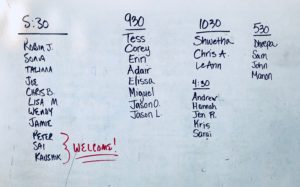 5:30
ROBIN J.
SONIA
TALIANA
JOE
CHRIS B.
LISA M
WENDY
JAMIE
PETER
SAI
KAUSHIK
WELCOME!
930
Tess
Corey
Erin
Adair
Elissa
Miguel
Jason O.
Jason L.
1030
Shwetha
Chris A.
LeAnn
4:30
Andrew
Hannah
Jen R.
Kris
Sargi
530
Sam
John
Manon